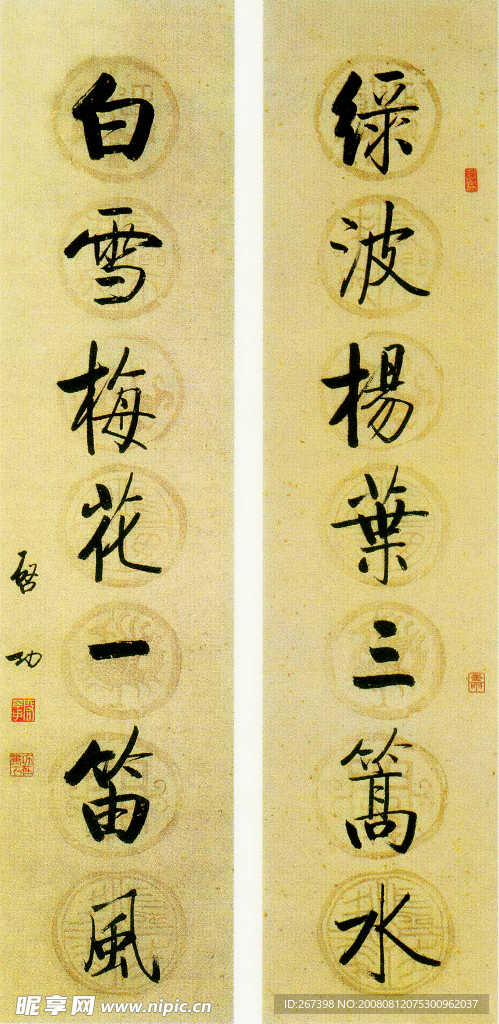 緑波楊葉三篙水
白雪梅花一笛風
啓功
昵享网 www.nipic.cn
ID:267398 NO:20080812075300962037